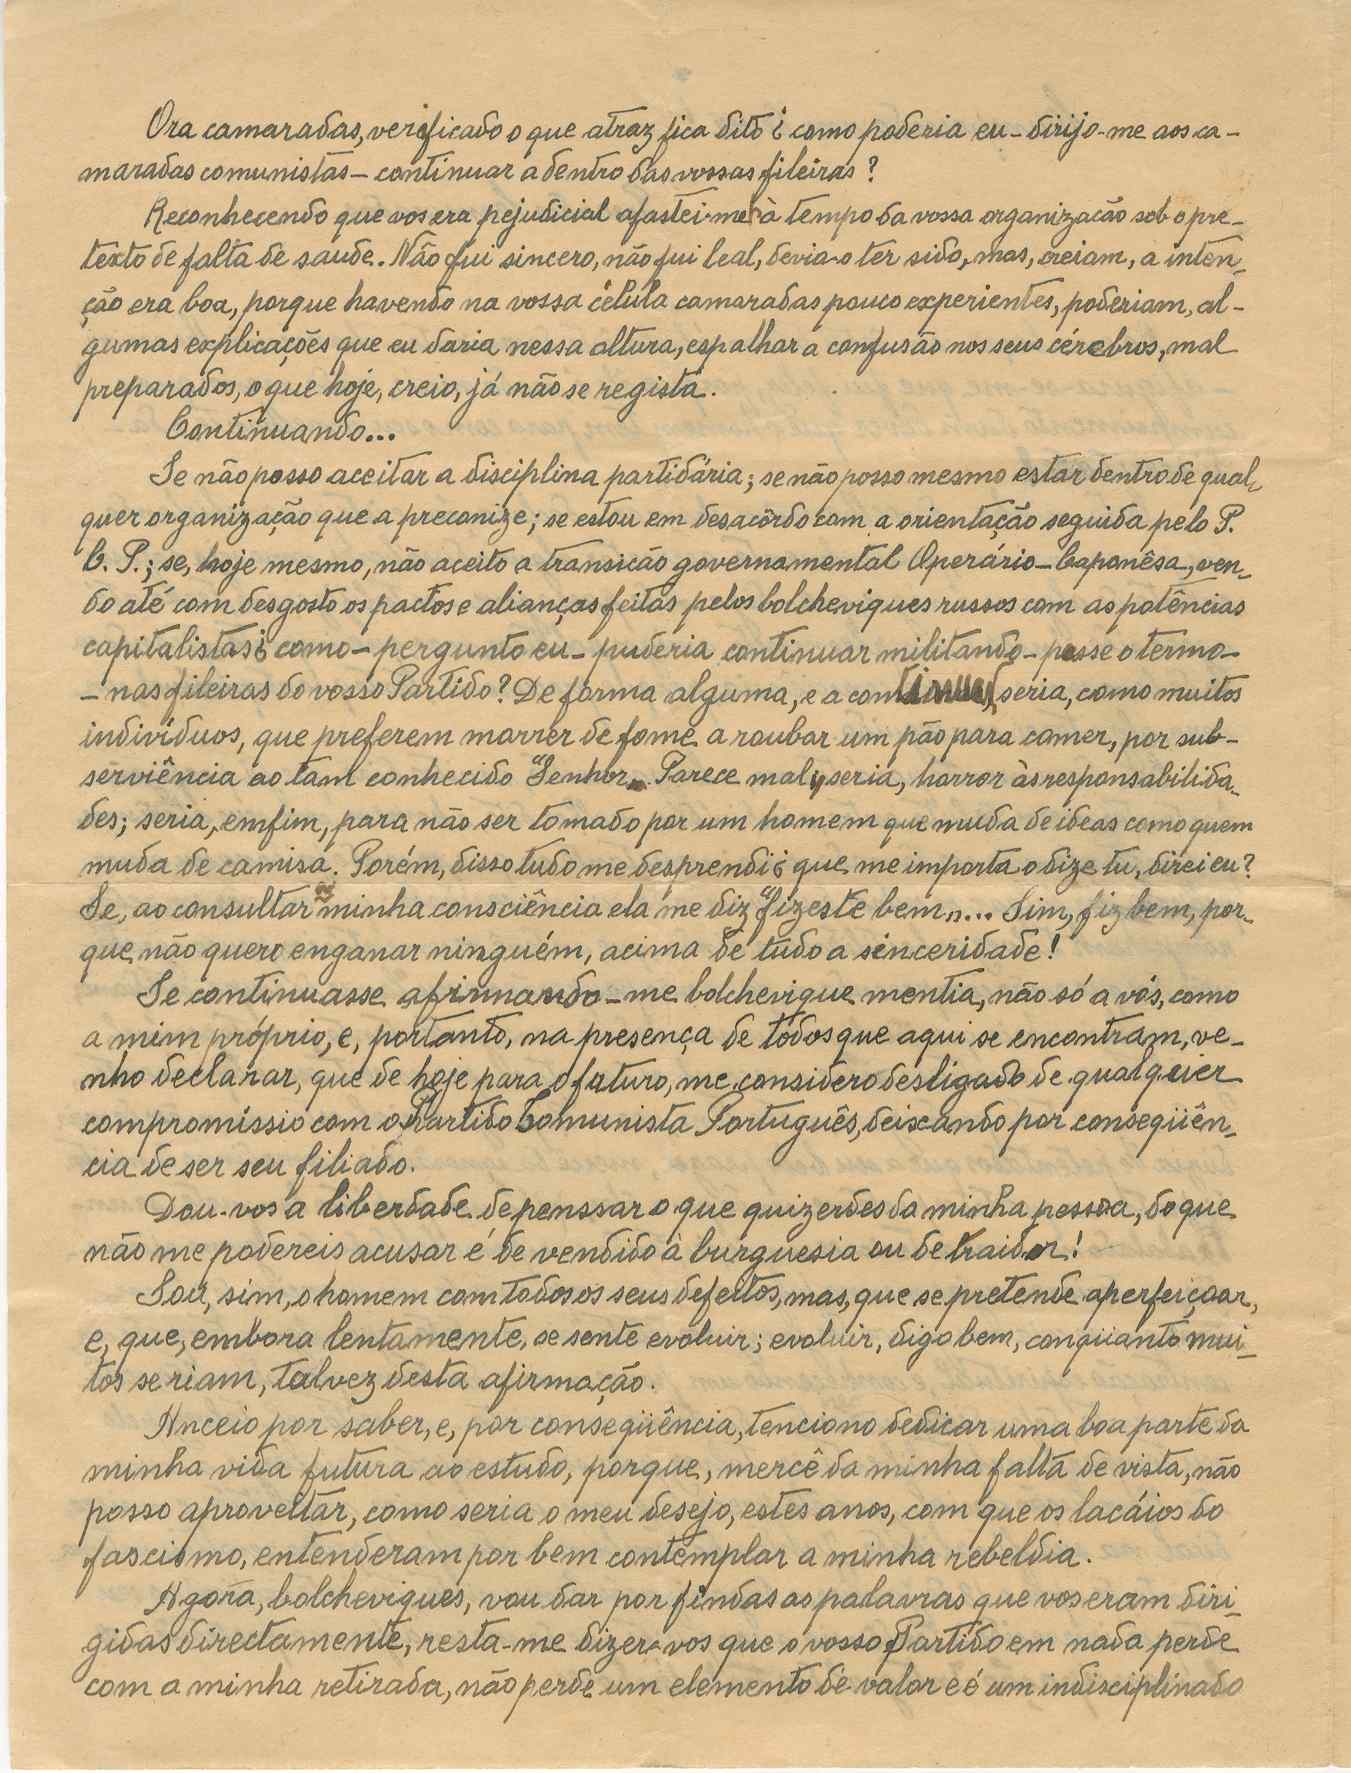 Ora camaradas, verificado o que atraz fica dito ¿ como poderia eu - dirijo-me aos ca-
maradas comunistas - continuar a dentro das vossas fileiras?
Reconhecendo que vos era pejudicial afastei-me à tempo da vossa organização sob o pre-
texto de falta de saude. Não fui sincero, não fui leal, devia-o ter sido, mas, creiam, a inten-
ção era boa, porque havendo na vossa célula camaradas pouco experientes, poderiam, al-
gumas explicações que eu daria nessa altura, espalhar a confusão nos seus cérebros, mal
preparados, o que hoje, creio, já não se regista.
Continuando...
Se não posso aceitar a disciplina partidária; se não posso mesmo estar dentro de qual-
quer organização que a preconize; se estou em desacôrdo com a orientação seguida pelo P.
C. P.; se, hoje mesmo, não aceito a transicão governamental Operário-Caponêsa, ven-
do até com desgosto os pactos e alianças feitas pelos bolcheviques russos com as potências
capitalistas ¿ como - pergunto eu - puderia continuar militando - passe o termo -
- nas fileiras do vosso Partido? De forma alguma, e a continuar, seria, como muitos
indivíduos, que preferem morrer de fome a roubar um pão para comer, por sub-
serviência ao tam conhecido "Senhor„ Parece mal; seria, horror às responsabilida-
des; seria, emfim, para não ser tomado por um homem que muda de ideas como quem
muda de camisa. Porém, disso tudo me desprendi ¿ que me importa o dize tu, direi eu?
Se, ao consultar a minha consciência ela me diz "fizeste bem„... Sim, fiz bem, por-
que não quero enganar ninguém, acima de tudo a sinceridade!
Se continuasse afirmando-me bolchevique mentia, não só a vós, como
a mim próprio, e, portanto, na presença de todos que aqui se encontram, ve-
nho declarar, que de hoje para o futuro, me considero desligado de qualquer
compromíssio com o Partido Comunista Português, deixando por conseqüên-
cia de ser seu filiado.
Dou-vos a liberdade de penssar o que quizerdes da minha pessoa, do que
não me podereis acusar é de vendido à burguesia ou de traidor!
Sou, sim, o homem com todos os seus defeitos, mas, que se pretende aperfeiçoar,
e, que, embora lentamente, se sente evoluir; evoluir, digo bem, conqüanto mui-
tos se riam, talvez desta afirmação.
Anceio por saber, e, por conseqüência, tenciono dedicar uma boa parte da
minha vida futura ao estudo, porque, mercê da minha falta de vista, não
posso aproveitar, como seria o meu desejo, estes anos, com que os lacáios do
fascismo, entenderam por bem contemplar a minha rebeldia.
Agora, bolcheviques, vou dar por findas as palavras que vos eram diri-
gidas directamente, resta-me dizer-vos que o vosso Partido em nada perde
com a minha retirada, não perde um elemento de valor e é um indisciplinado